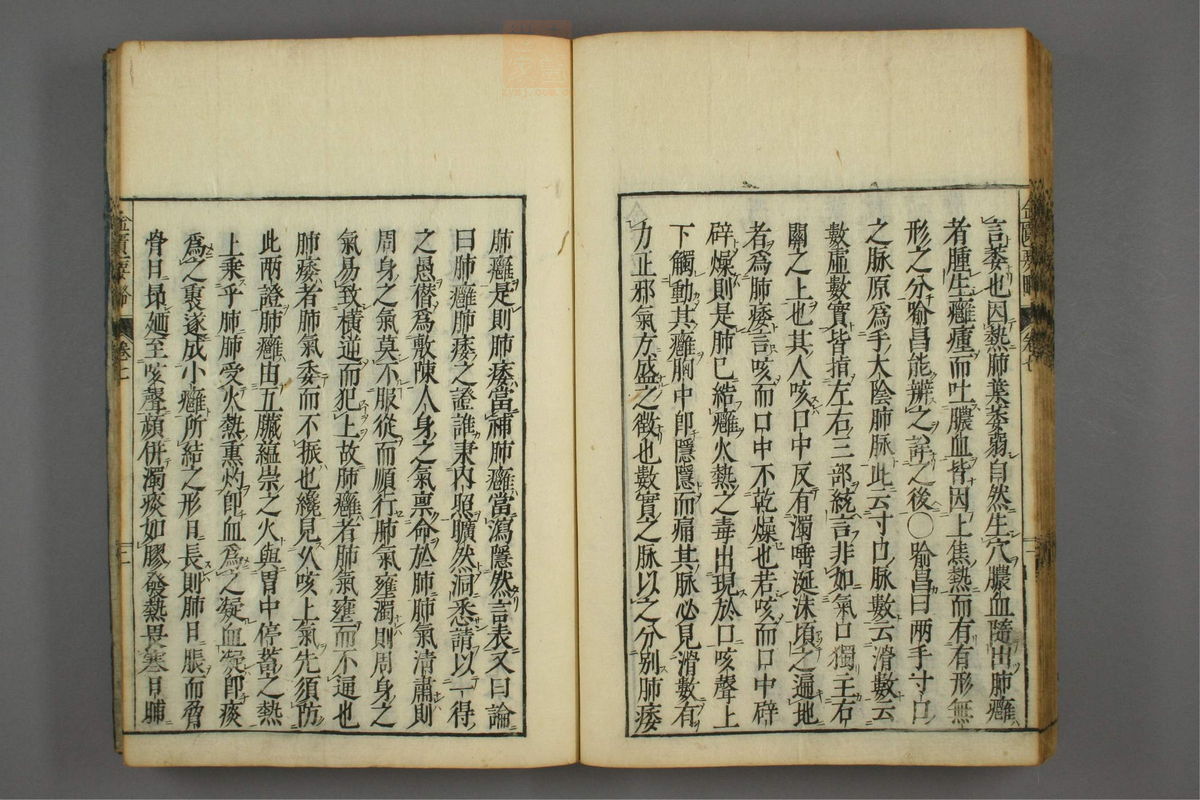 言萎也因熱肺葉萎弱自然生穴膿血隨出肺癰
者腫生癰瘇而吐膿血皆因上焦熱而有有形無
形之分喻昌能辨之詳之後〇喻昌曰兩手寸口
之脉原爲手大陰肺脉此云寸口脉數云滑數云
數虛數實皆指左右三部統言非如氣口獨主右
關之上也其人咳口中反有濁唾涎沫頃之遍地
者爲肺痿言咳而口中不乾燥也若咳而口中辟
辟燥則是肺已結癰火熱之毒出現於口咳聲上
下觸動其癰胸中卽隱隱而痛其脉必見滑數有
力正邪氣方盛之徵也數實之脉以之分別肺痿
肺癰是則肺痿當補肺癰當瀉隱然言表又曰論
曰肺癰肺痿之證誰秉內照曠然洞悉請以一得
之愚僣爲敷陳人身之氣稟命於肺肺氣清肅則
周身之氣莫不服從而順行肺氣壅濁則周身之
氣易致橫逆而犯上故肺癰者肺氣壅而不逼也
肺痿者肺氣委而不振也纔見久咳上氣先須防
此兩證肺癰由五臟蘊崇之火與胃中停蓄之熱
上乗乎肺肺受火熱熏灼卽血爲之凝血凝卽痰
爲之裹遂成小癰所結之形日長則肺日脹而脅
骨日昻廼至咳聲頻倂濁痰如膠發熱畏寒日晡